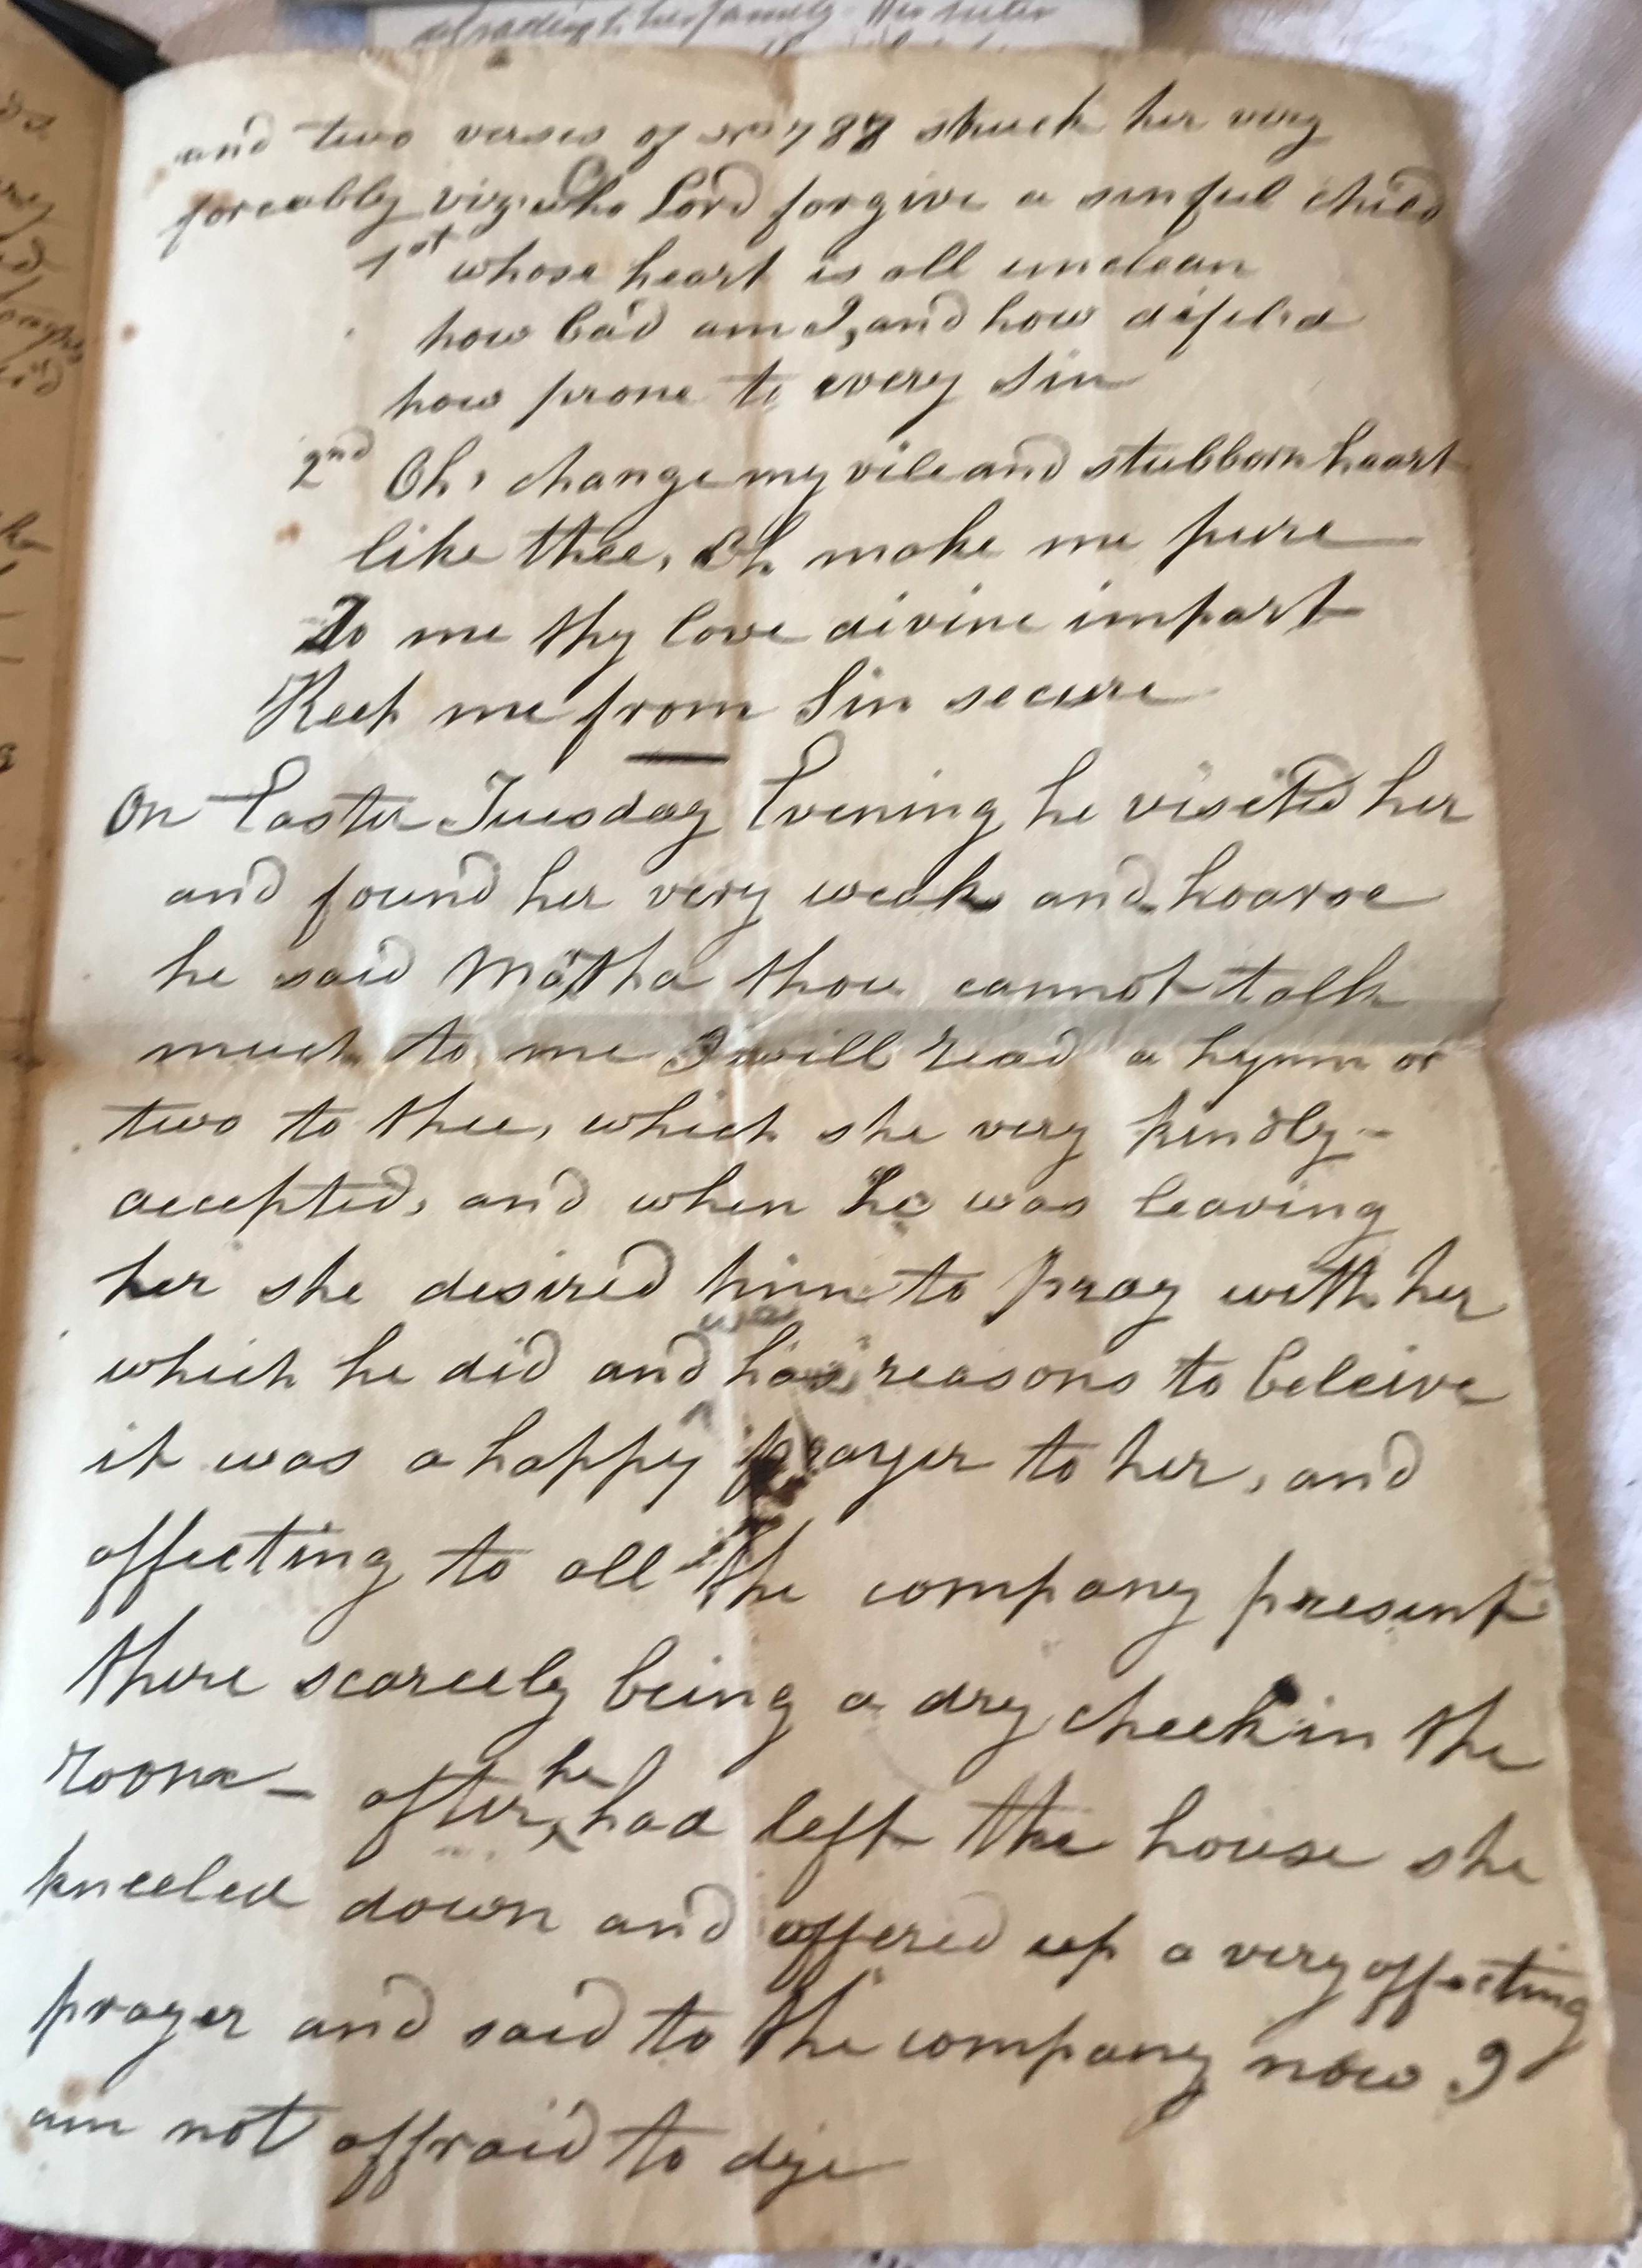 and two verses of No 788 struck her very
forceably viz. Oh Lord forgive a sinful child
1st whose heart is all unclean
how bad am I, and how defil.d
how prone to every Sin
2nd Oh, change my vile and stubborn heart
like thee, Oh, make me pure
To me thy love divine impart
Keep me from Sin secure
On Easter Tuesday Evening he visited her
and found her very weak and hoarse
he said Martha thou cannot talk
much to me I will read a hymn or
two to thee, which she very kindly
accepted, and when he was leaving
her she desired him to pray with her
which he did and has reasons to beleive
it was a happy prayer to her, and
affecting to all the company present
there scarcely being a dry cheek in the
room - after he had left the house she
kneeled down and offered up a very affecting
prayer and said to the company now I
am not affraid to dye